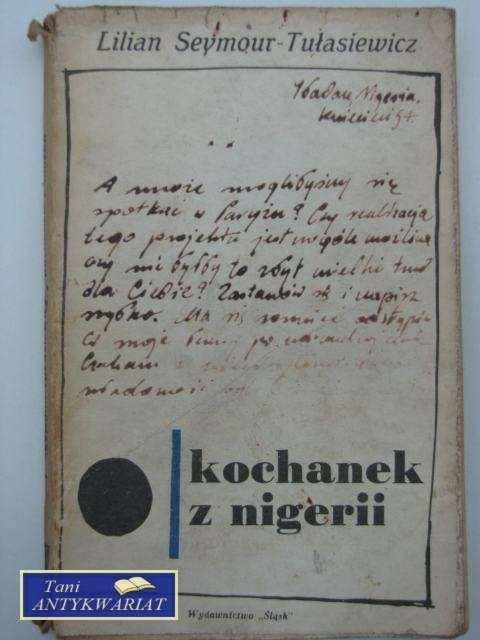 Lilian Seymour-Tułasiewicz
Ibadan, Nigeria,
kwiecień 54.
A może moglibyśmy się
spotkać w Paryżu? Czy realizacja
tego projektu jest w ogóle możliwa
czy nie byłby to zbyt wielki trud
dla Ciebie? Zastanów się i napisz
szybko. Ma się rozumieć
Czekam
wiadomość
kochanek
z nigerii
Wydawnictwo „Śląsk"
Tani
ANTYKWARIAT